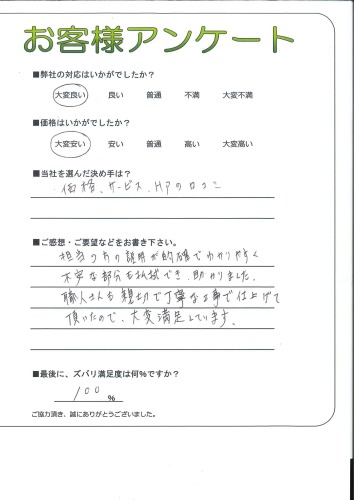 お客様アンケート
■弊社の対応はいかがでしたか？
大変良い 良い 普通 不満 大変不満
■価格はいかがでしたか？
大変安い 安い 普通 高い 大変高い
■当社を選んだ決め手は？
価格、サービス、HPの口コミ
■ご感想・ご要望などをお書き下さい。
担当の説明が的確でわかりやすく
不安な部分も払拭でき、助かりました。
職人さんも親切で丁寧な工事で仕上げて
頂いたので、大変満足しています。
■最後に、ズバリ満足度は何%ですか？
100 %
ご協力頂き、誠にありがとうございました。